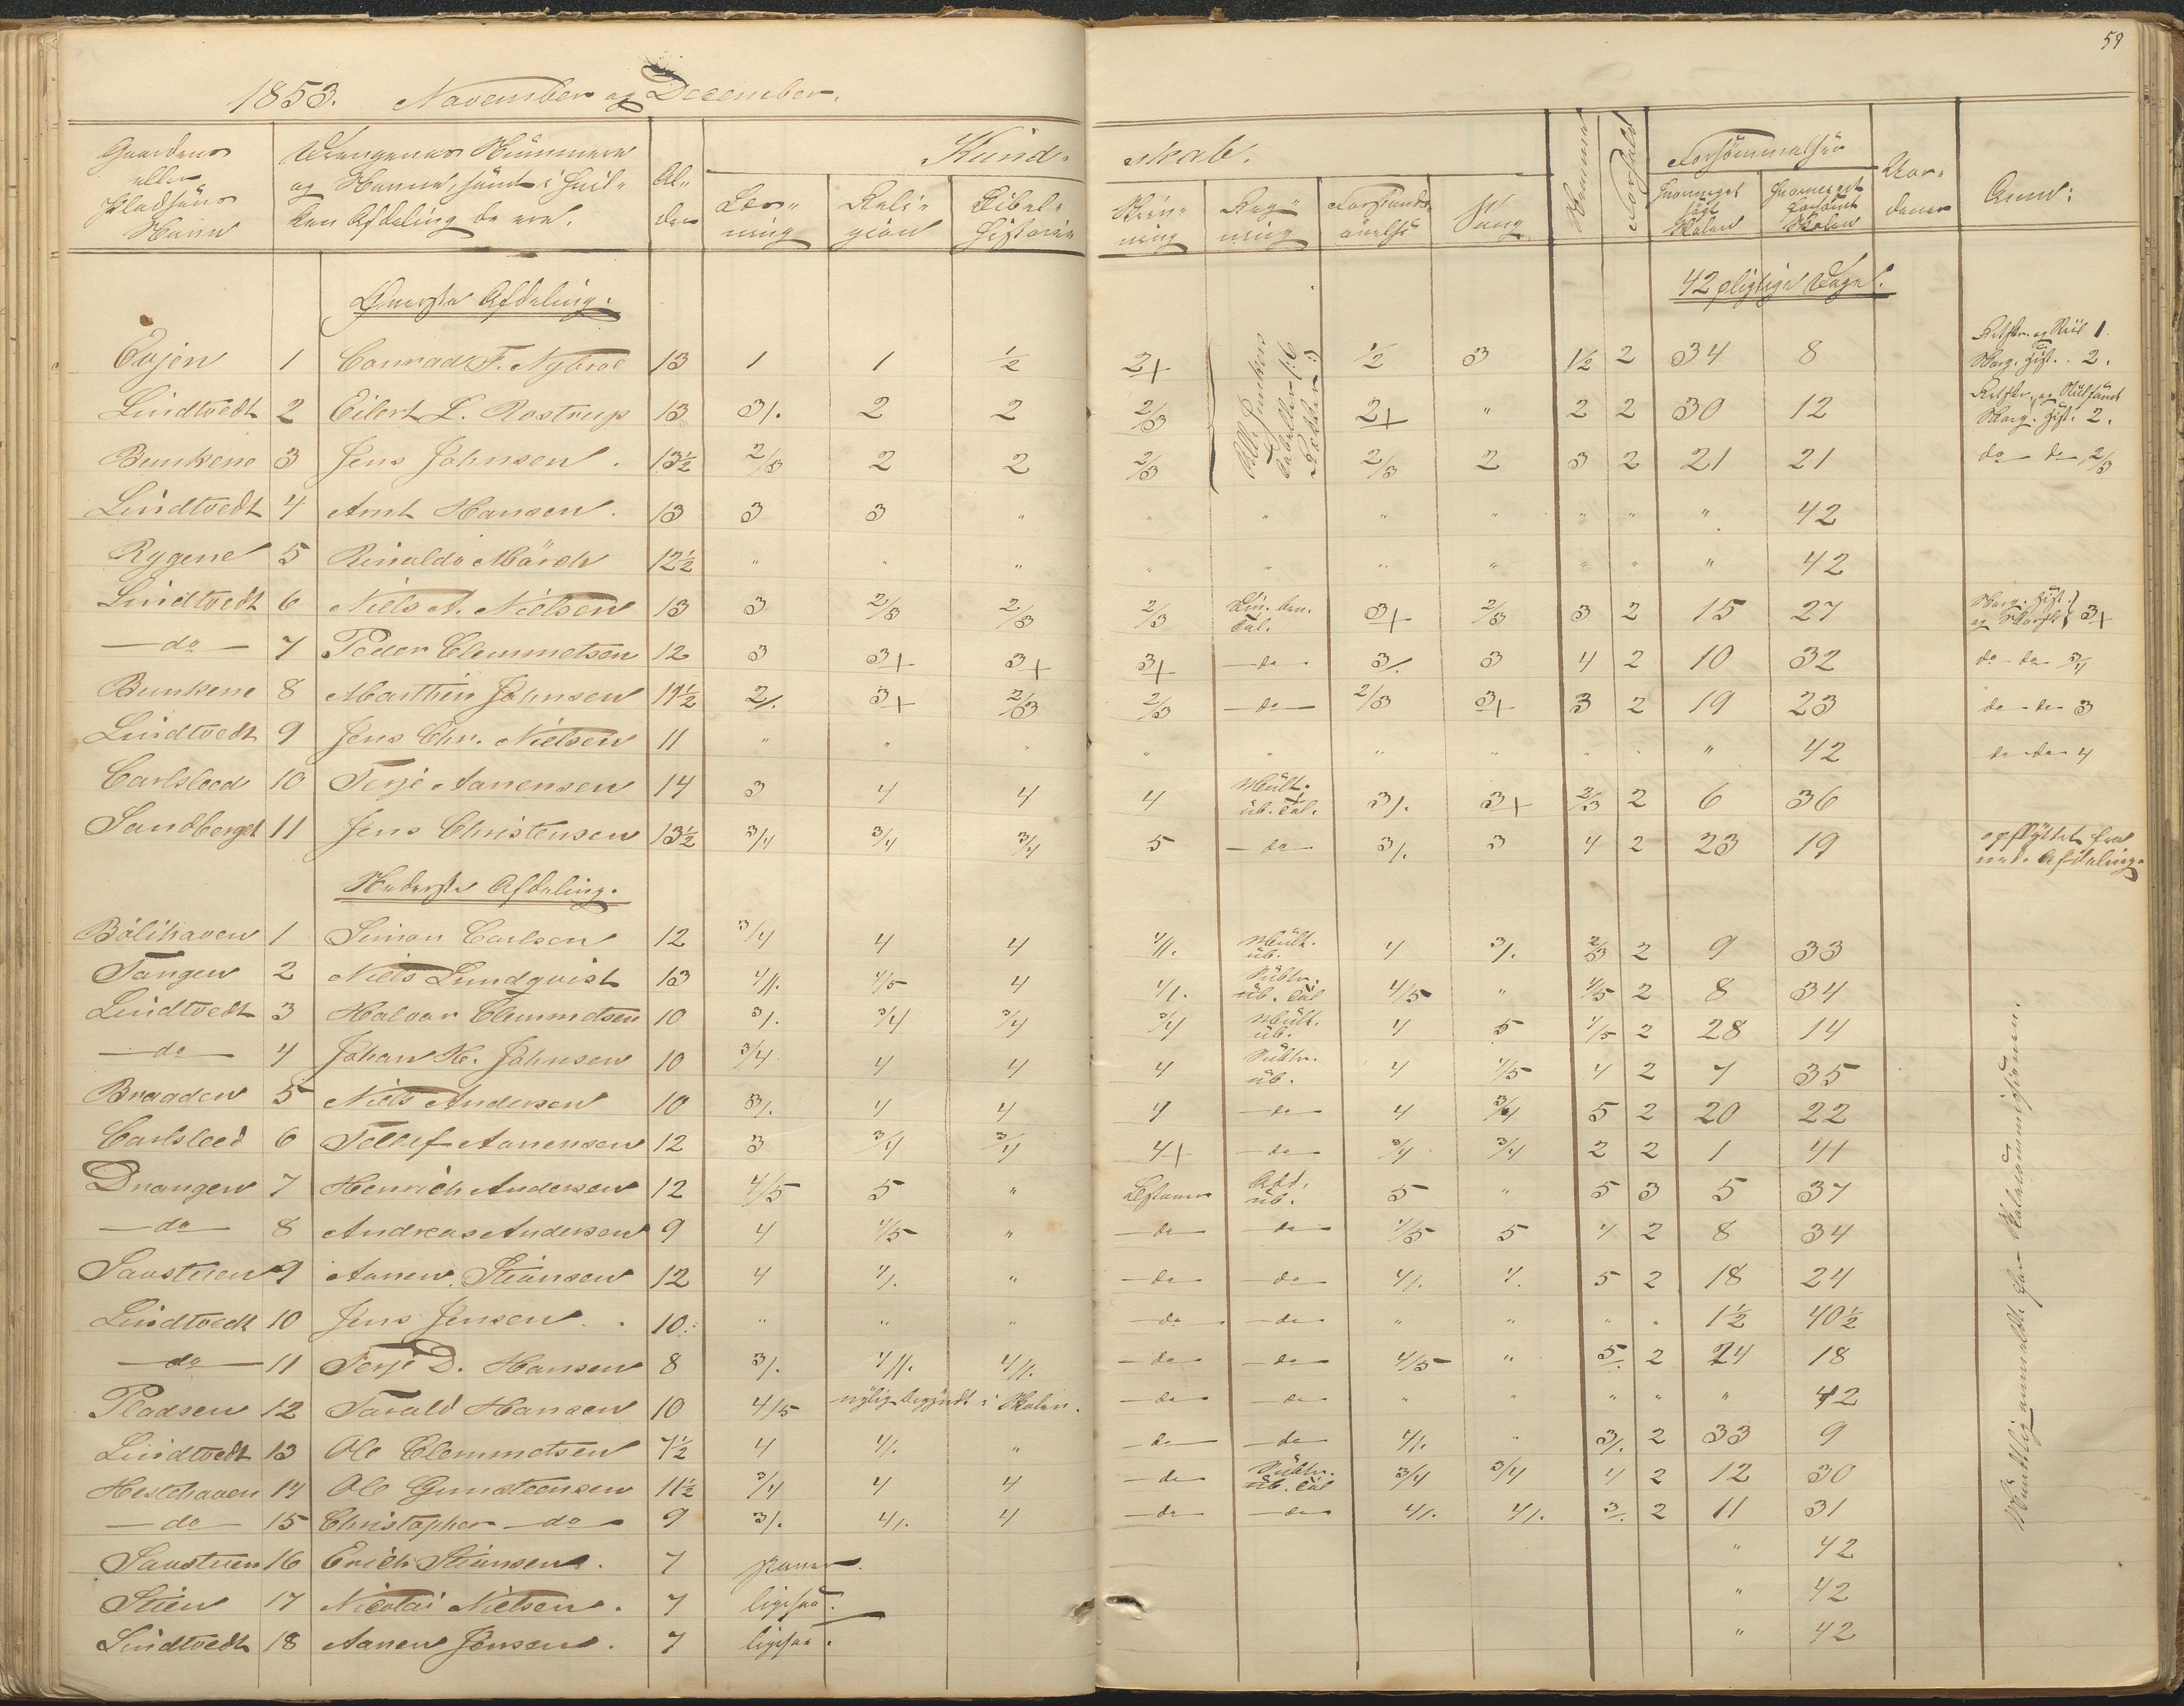 59
1853. November og December.
Gaardens eller Pladsens Navn | Drengenes Nummere og Navne, samt i hvil- ken Afdeling de ere. | Al- der | Kund- skab.
Læs- ning | Reli- gion | Bibel- historie | Skriv- ning | Reg- ning | Forstands- øvelse | Sang | Nemme | Forhold | Forsømmelser | Hvormeget søgt Skolen | Hvormeget forsømt Skolen | Anm:
Øverste Afdeling.
42 pligtige Dage.
Evjen 1 Conrad F. Nybroe 13 1 1 1/2 2+ 1/2 3 1/2 2 34 8
Lindtvedt 2 Eilert L. Rostrup 13 3/. 2 2 2/3 2+ " 2 2 30 12
Norg. Hist. 2.
Bunkene 3 Jens Johnsen. 13½ 2/3 2 2 2/3 2/3 2 3 2 21 21 do do 2/3
Lindtvedt 4 Arnt Hansen. 13 3 3 " " " " " " " " 42
Rygene 5 Rinaldo Mörch 12½ " " " " " " " " " " 42
Lindtvedt 6 Niels A. Nielsen 13 3 2/3 2/3 2/3 3+ 2/3 3 2 15 27 3+
do 7 Peder Clemmetsen 12 3 3+ 3+ 3+ do 3/. 3 4 2 10 32 do do 3/4
Bunkene 8 Marthin Johnsen 11½ 2/. 3+ 2/3 2/3 do 2/3 3+ 3 2 19 23 do do 3
Lindtvedt 9 Jens Chr. Nielsen 11 " " " " " " " " " " 42 do do 4
Carlsleed 10 Terje Aanensen 14 3 4 4 4 Mult. üb. Tal. 3/. 3+ 2/3 2 6 36
Sandberget 11 Jens Christensen 13½ 3/4 3/4 3/4 5 do 3/. 3 4 2 23 19 opflyttet fra ned. Afdeling.
Nederste Afdeling.
Bölihaven 1 Simon Carlsen 12 3/4 4 4 4/. Mult. üb. 4 3/. 2/3 2 9 33
Tangen 2 Niels Lundqvist 13 4//. 4/5 4 4/. Subtr. üb. Tal 4/5 " 4/5 2 8 34
Lindtvedt 3 Halvor Clemmetsen 10 3/. 3/4 3/4 3/4 Mult. üb. 4 5 4/5 2 28 14
do 4 Johan H. Johnsen 10 3/4 4 4 4 Subtr. üb. 4 4/5 4 2 7 35
Braaden 5 Niels Andersen 10 3/. 4 4 4 do 4 3/4 5 2 20 22
Carlsleed 6 Tellef Aanensen 12 3 3/4 3/4 4+ do 3/4 3/4 2 2 1 41
Drangen 7 Henrich Andersen 12 4/5 5 " Add. üb. 5 " 5 3 5 37
do 8 Andreas Andersen 9 4 4/5 " do do 4/5 5 4 2 8 34
Saustuen 9 Aanen Stiansen 12 4 4/. " do do 4/. 4/. 5 2 18 24
Lindtvedt 10 Jens Jensen. 10 " " " do do " " " " 1½ 40½
do 11 Terje D. Hansen 8 3/. 4//. 4//. do do 4/5 " 5/. 2 24 18
Pladsen 12 Tarald Hansen 10 4/5 nylig begyndt i Skolen. do do " " " " " 42
Lindtvedt 13 Ole Clemmetsen 7½ 4 4/. " do do 4/. " 3/. 2 33 9
Hestehaven 14 Ole Gunsteensen 11½ 3/4 4 4 do Subtr. üb. Tal 3/4 3/4 4 2 12 30
do 15 Christopher do 9 3/. 4/. 4 do do 4/. 4/. 3/. 2 11 31
Saustuen 16 Erich Stiansen. 7 " 42
Stien 17 Nicolai Nielsen. 7 ligesaa. " 42
Lindtvedt 18 Aanen Jensen. 7 ligesaa. " 42